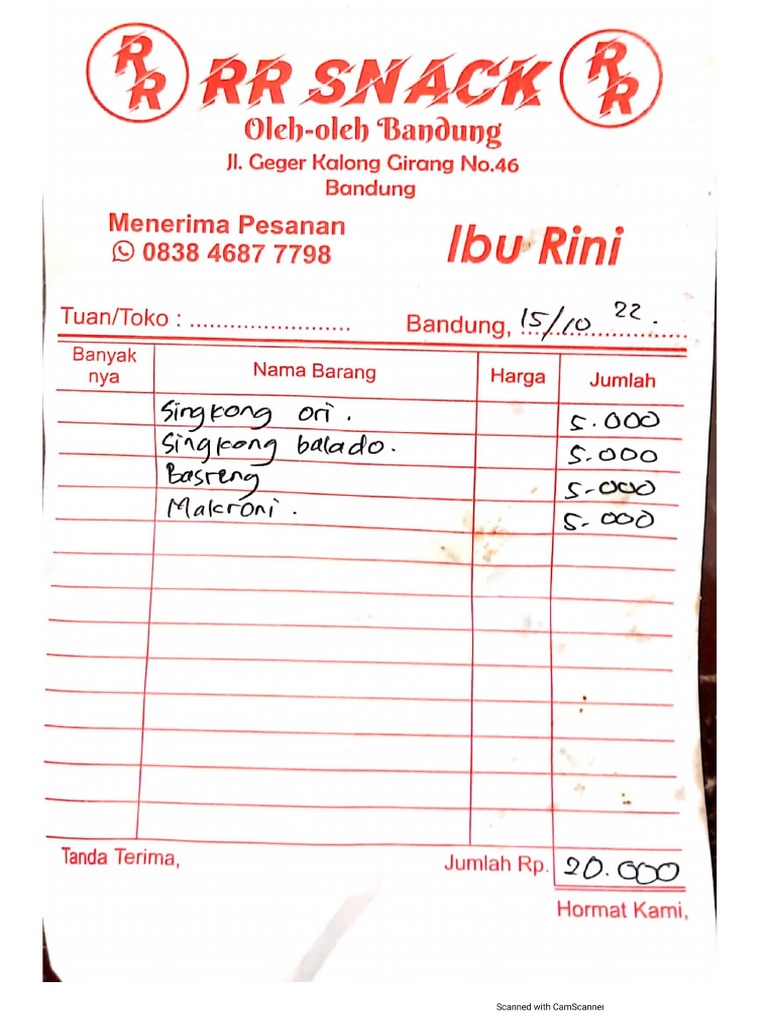 RR RR SNACK RR
Oleh-oleh Bandung
Jl. Geger Kalong Girang No.46
Bandung
Menerima Pesanan
0838 4687 7798
Ibu Rini
Tuan/Toko : ........................
Bandung, 15/10 22.
Banyak nya Nama Barang Harga Jumlah
Singkong ori. 5.000
Singkong balado. 5.000
Basreng 5-000
Makroni. 5-000
Tanda Terima, Jumlah Rp. 20.000
Hormat Kami,
Scanned with CamScanner